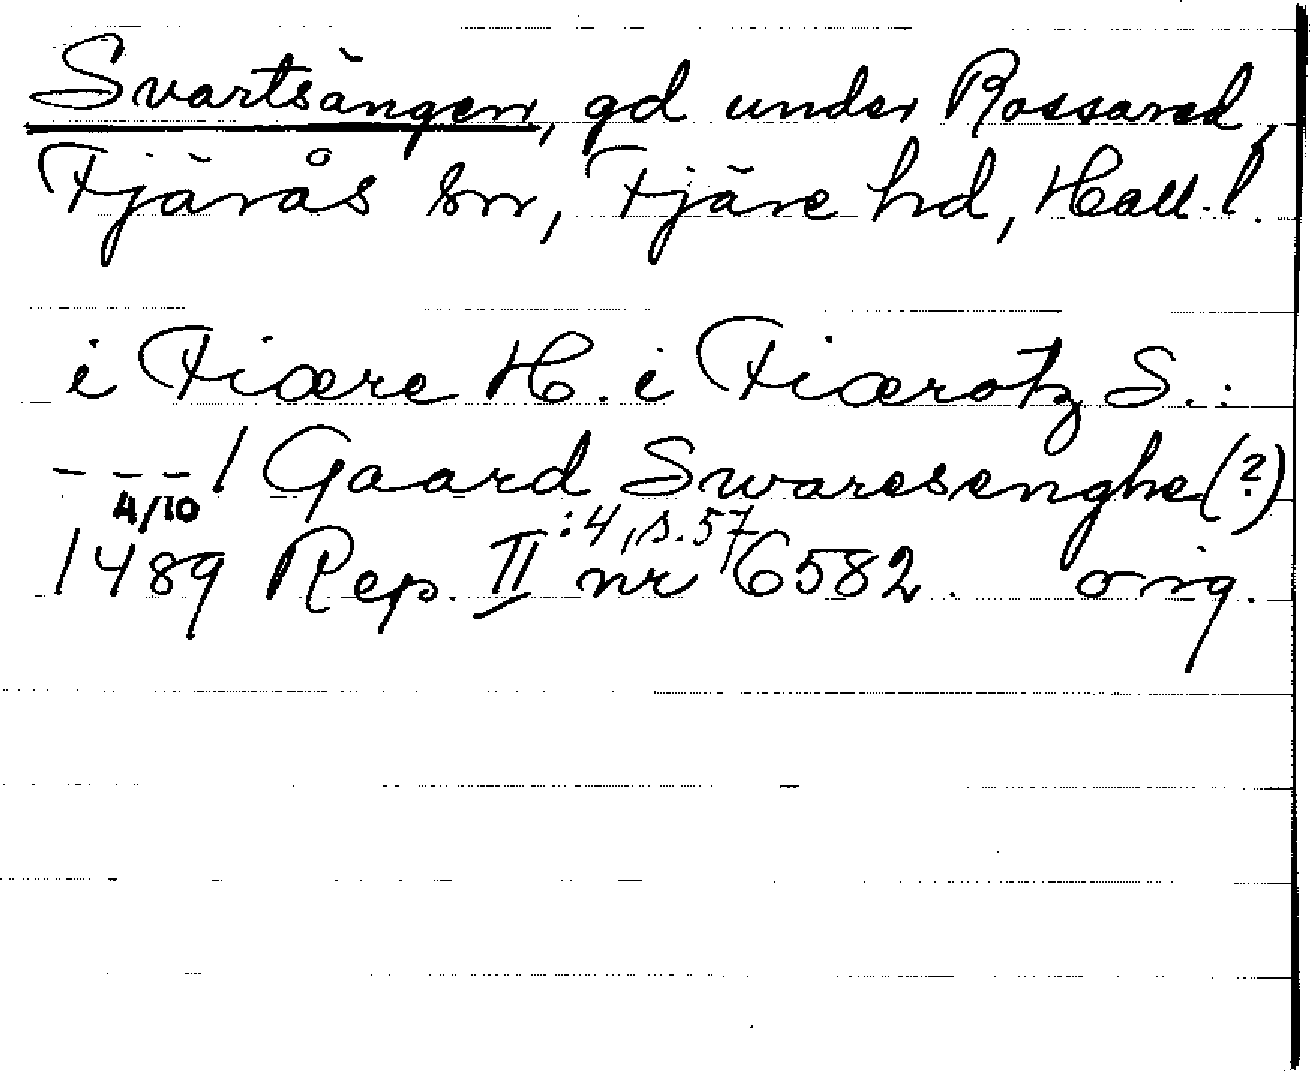 Svartsängen, gd under Rossared,
Fjärås sn, Fjäre hd, Hall. l.
i Fiære H. i Fiærotz S.:
- - - 1 Gaard Swaresenghe (?)
4/10
1489 Rep. II :4, s. 57 nr 6582. orig.